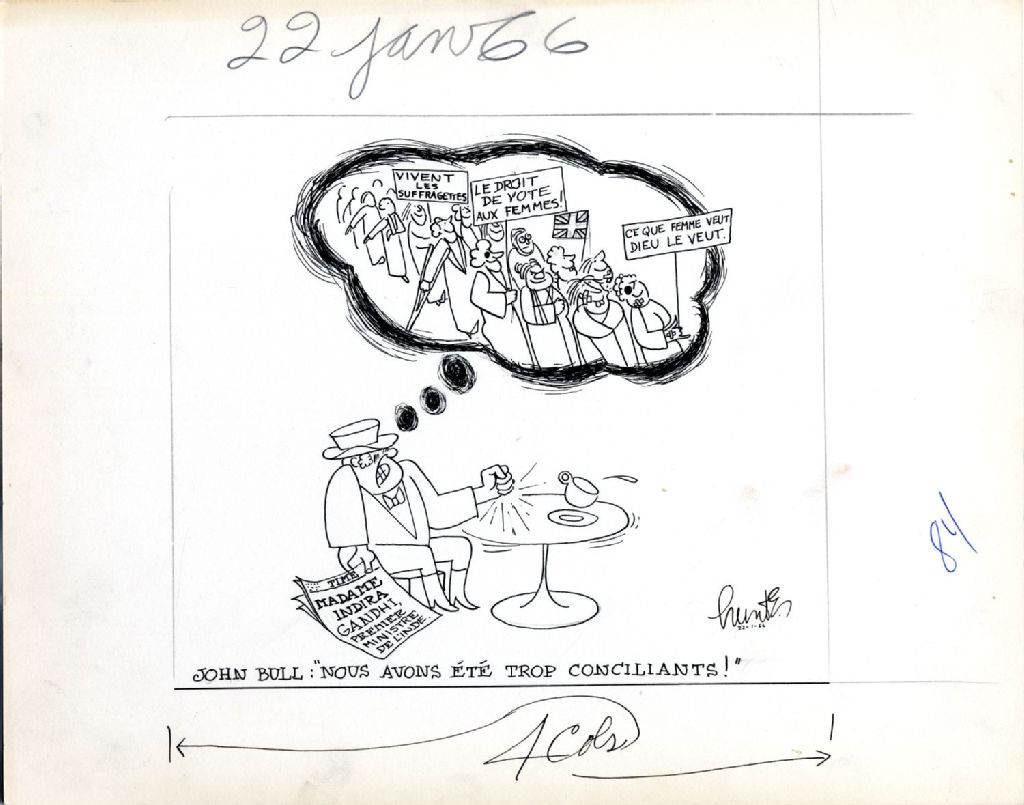 22 jan 66
VIVENT
LES
SUFFRAGETTES
LE DROIT
DE VOTE
AUX FEMMES!
CE QUE FEMME VEUT
DIEU LE VEUT.
TIME
MADAME
INDIRA
GANDHI,
PREMIER
MINISTRE
DE L'INDE.
84
hunter
22-1-66
JOHN BULL: "NOUS AVONS ÉTÉ TROP CONCILIANTS!"
4 Cols